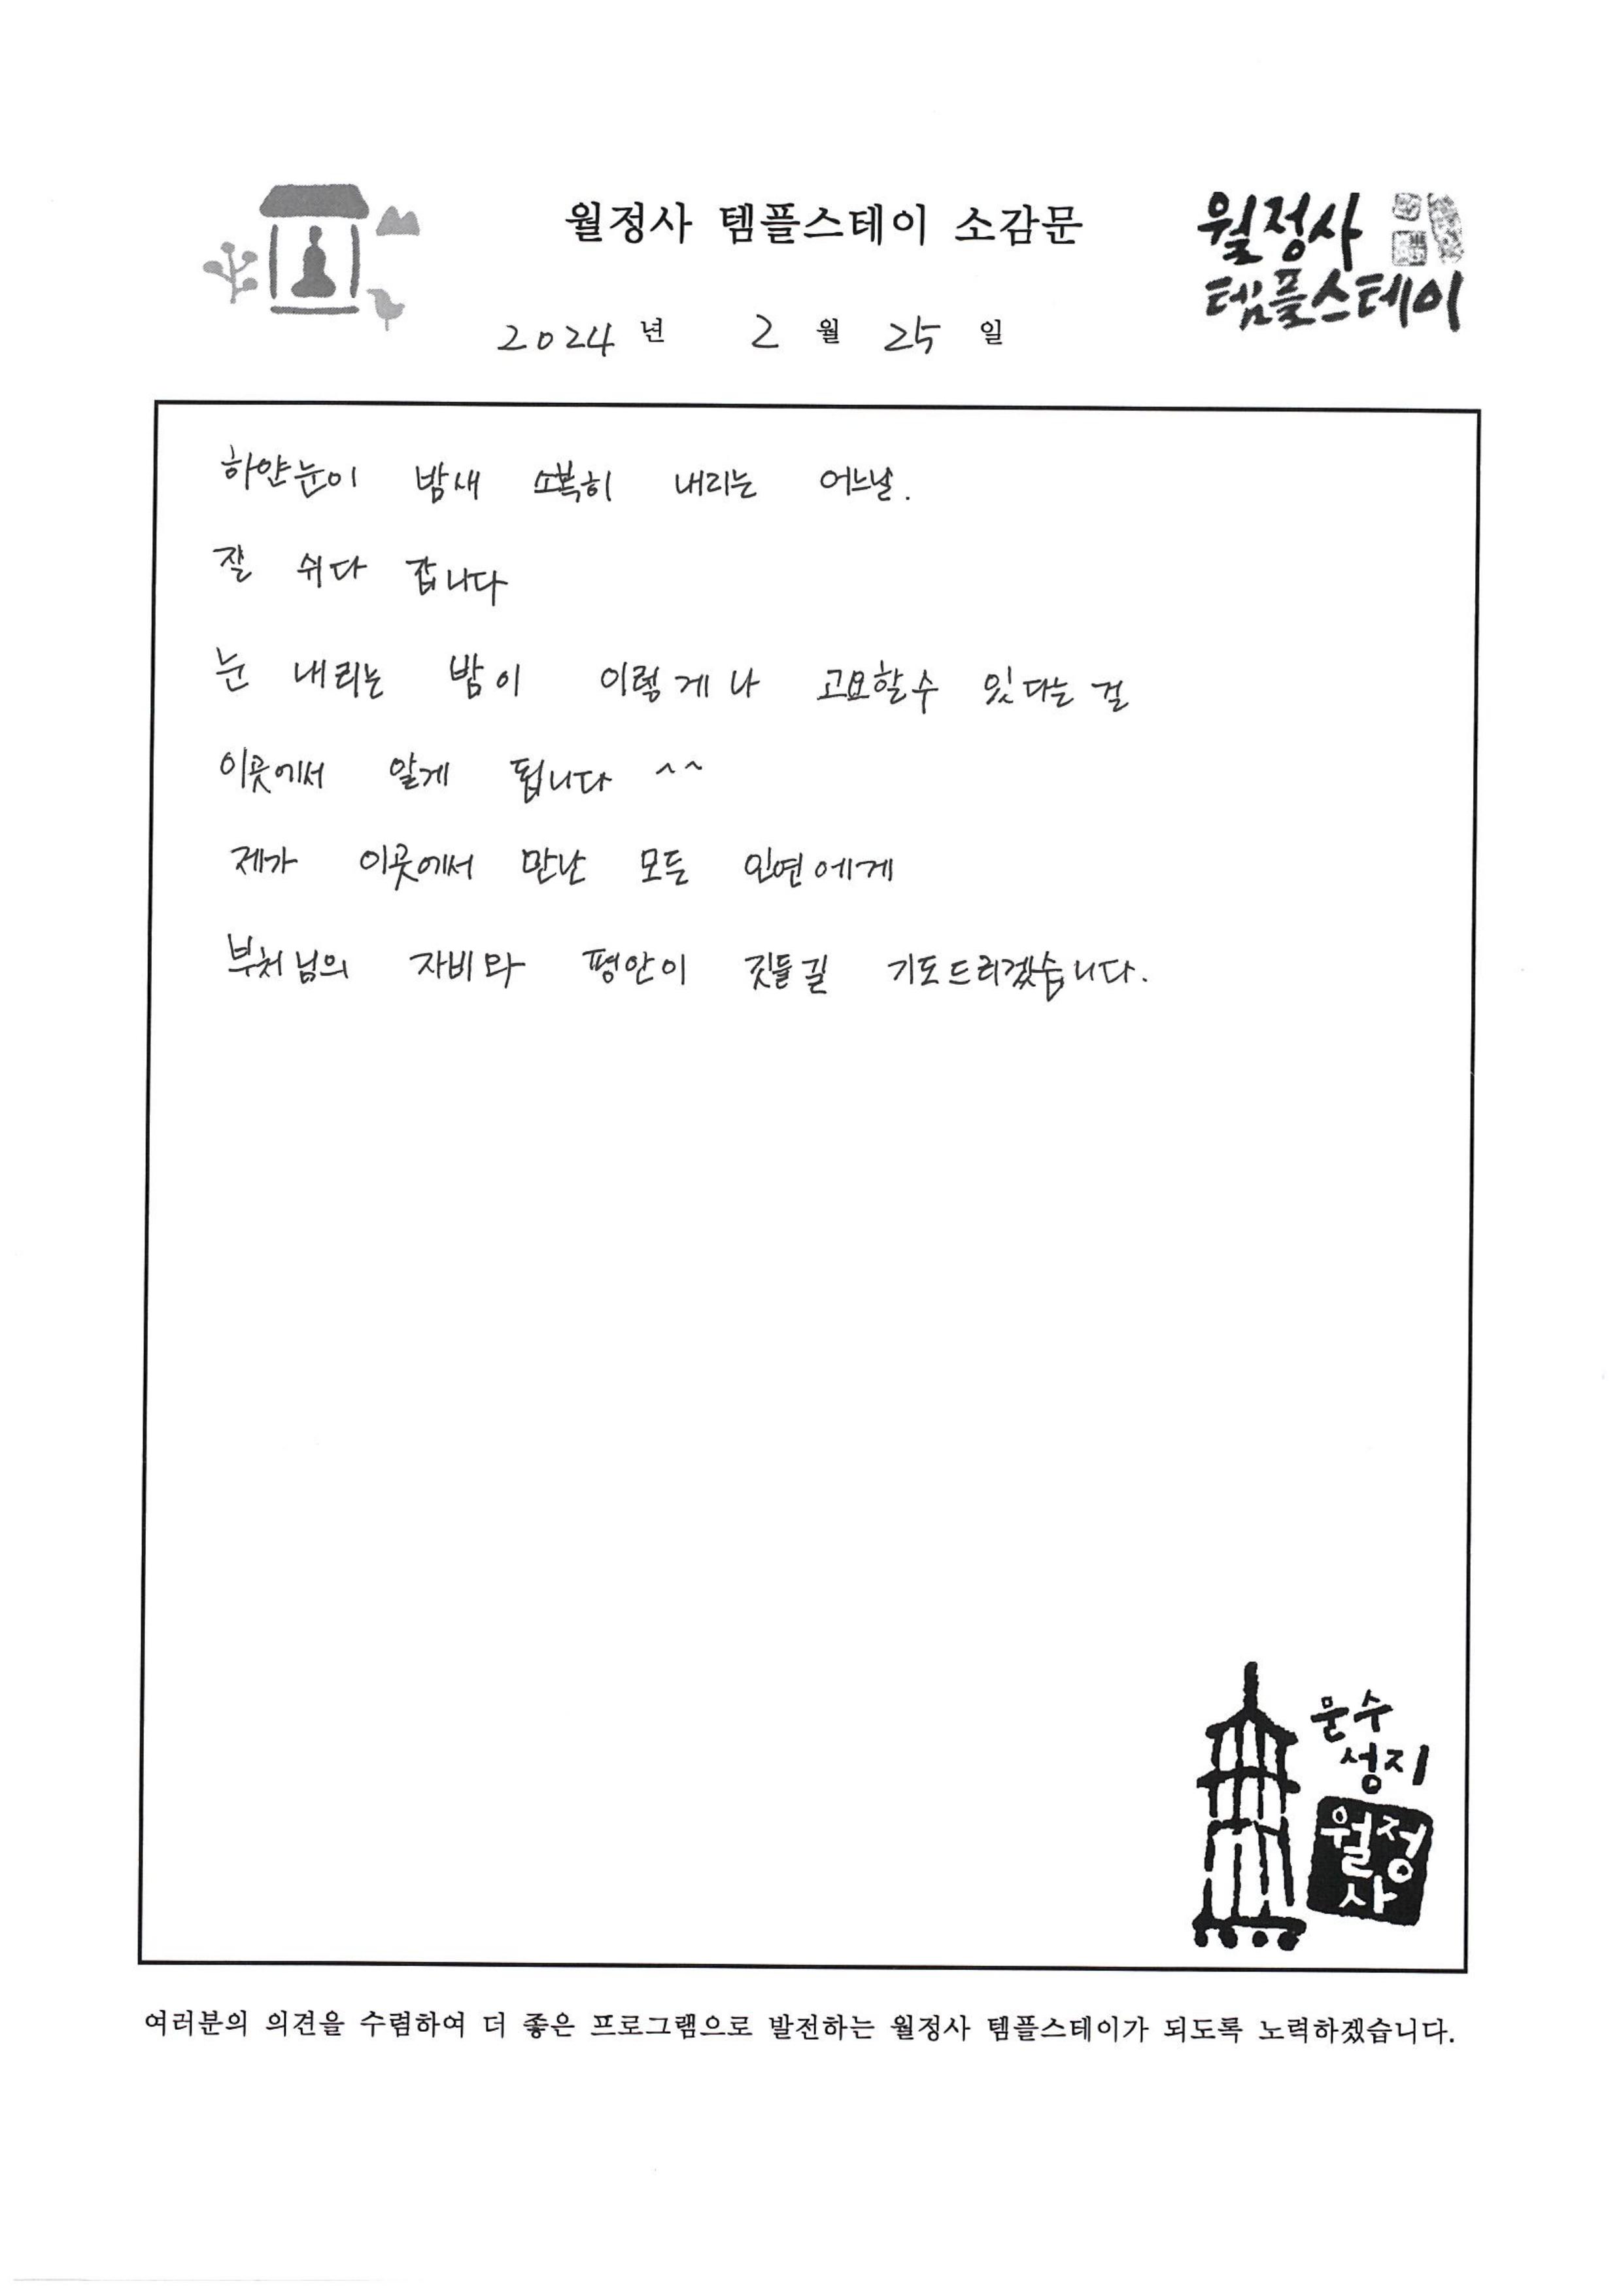 월정사 템플스테이 소감문
월정사
템플스테이
2024 년 2 월 25 일
하얀눈이 밤새 소복히 내리는 어느날.
잘 쉬다 갑니다
눈 내리는 밤이 이렇게나 고요할수 있다는 걸
이곳에서 알게 됩니다 ^^
제가 이곳에서 만난 모든 인연에게
부처님의 자비와 평안이 깃들길 기도드리겠습니다.
문수
성지
월정
사
여러분의 의견을 수렴하여 더 좋은 프로그램으로 발전하는 월정사 템플스테이가 되도록 노력하겠습니다.